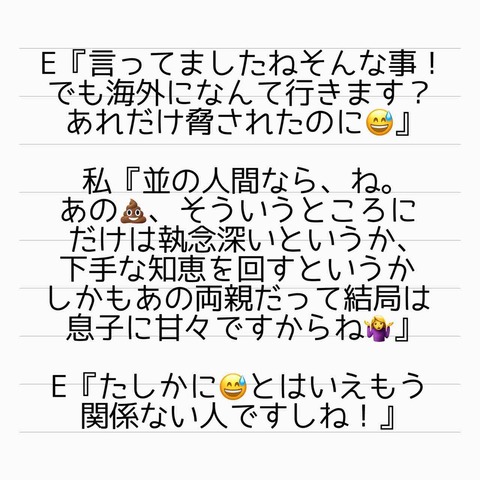 E『言ってましたねそんな事！
でも海外になんて行きます？
あれだけ脅されたのに😅』
私『並の人間なら、ね。
あの💩、そういうところに
だけは執念深いというか、
下手な知恵を回すというか
しかもあの両親だって結局は
息子に甘々ですからね🤷‍♀️』
E『たしかに😅とはいえもう
関係ない人ですしね！』